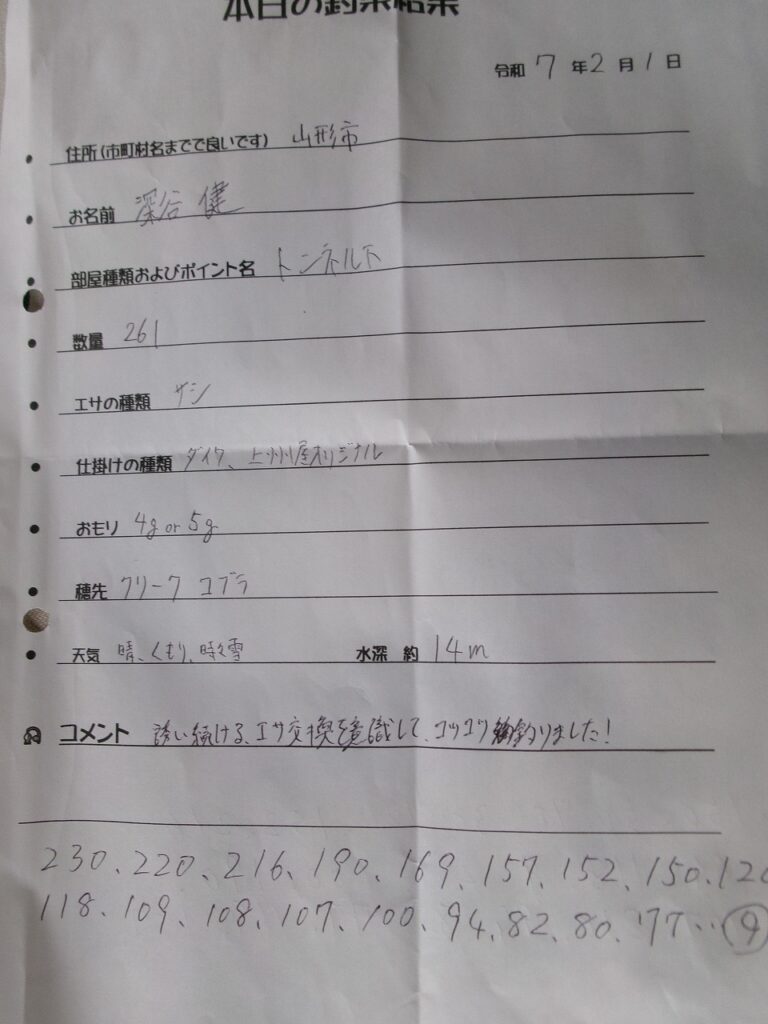 本日の釣果結果
令和 7 年 2 月 1 日
住所(市町村名までで良いです) 山形市
お名前 深谷 健
部屋種類およびポイント名 トンネル下
数量 261
エサの種類 サシ
仕掛けの種類 ダイワ、上州屋オリジナル
おもり 4g or 5g
穂先 クリーク コブラ
天気 晴、くもり、時々雪 水深 約 14m
コメント 誘い続ける、エサ交換を意識して、コツコツ釣りました!
230、220、216、190、169、157、152、150、120
118、109、108、107、100、94、82、80、77‥⑨